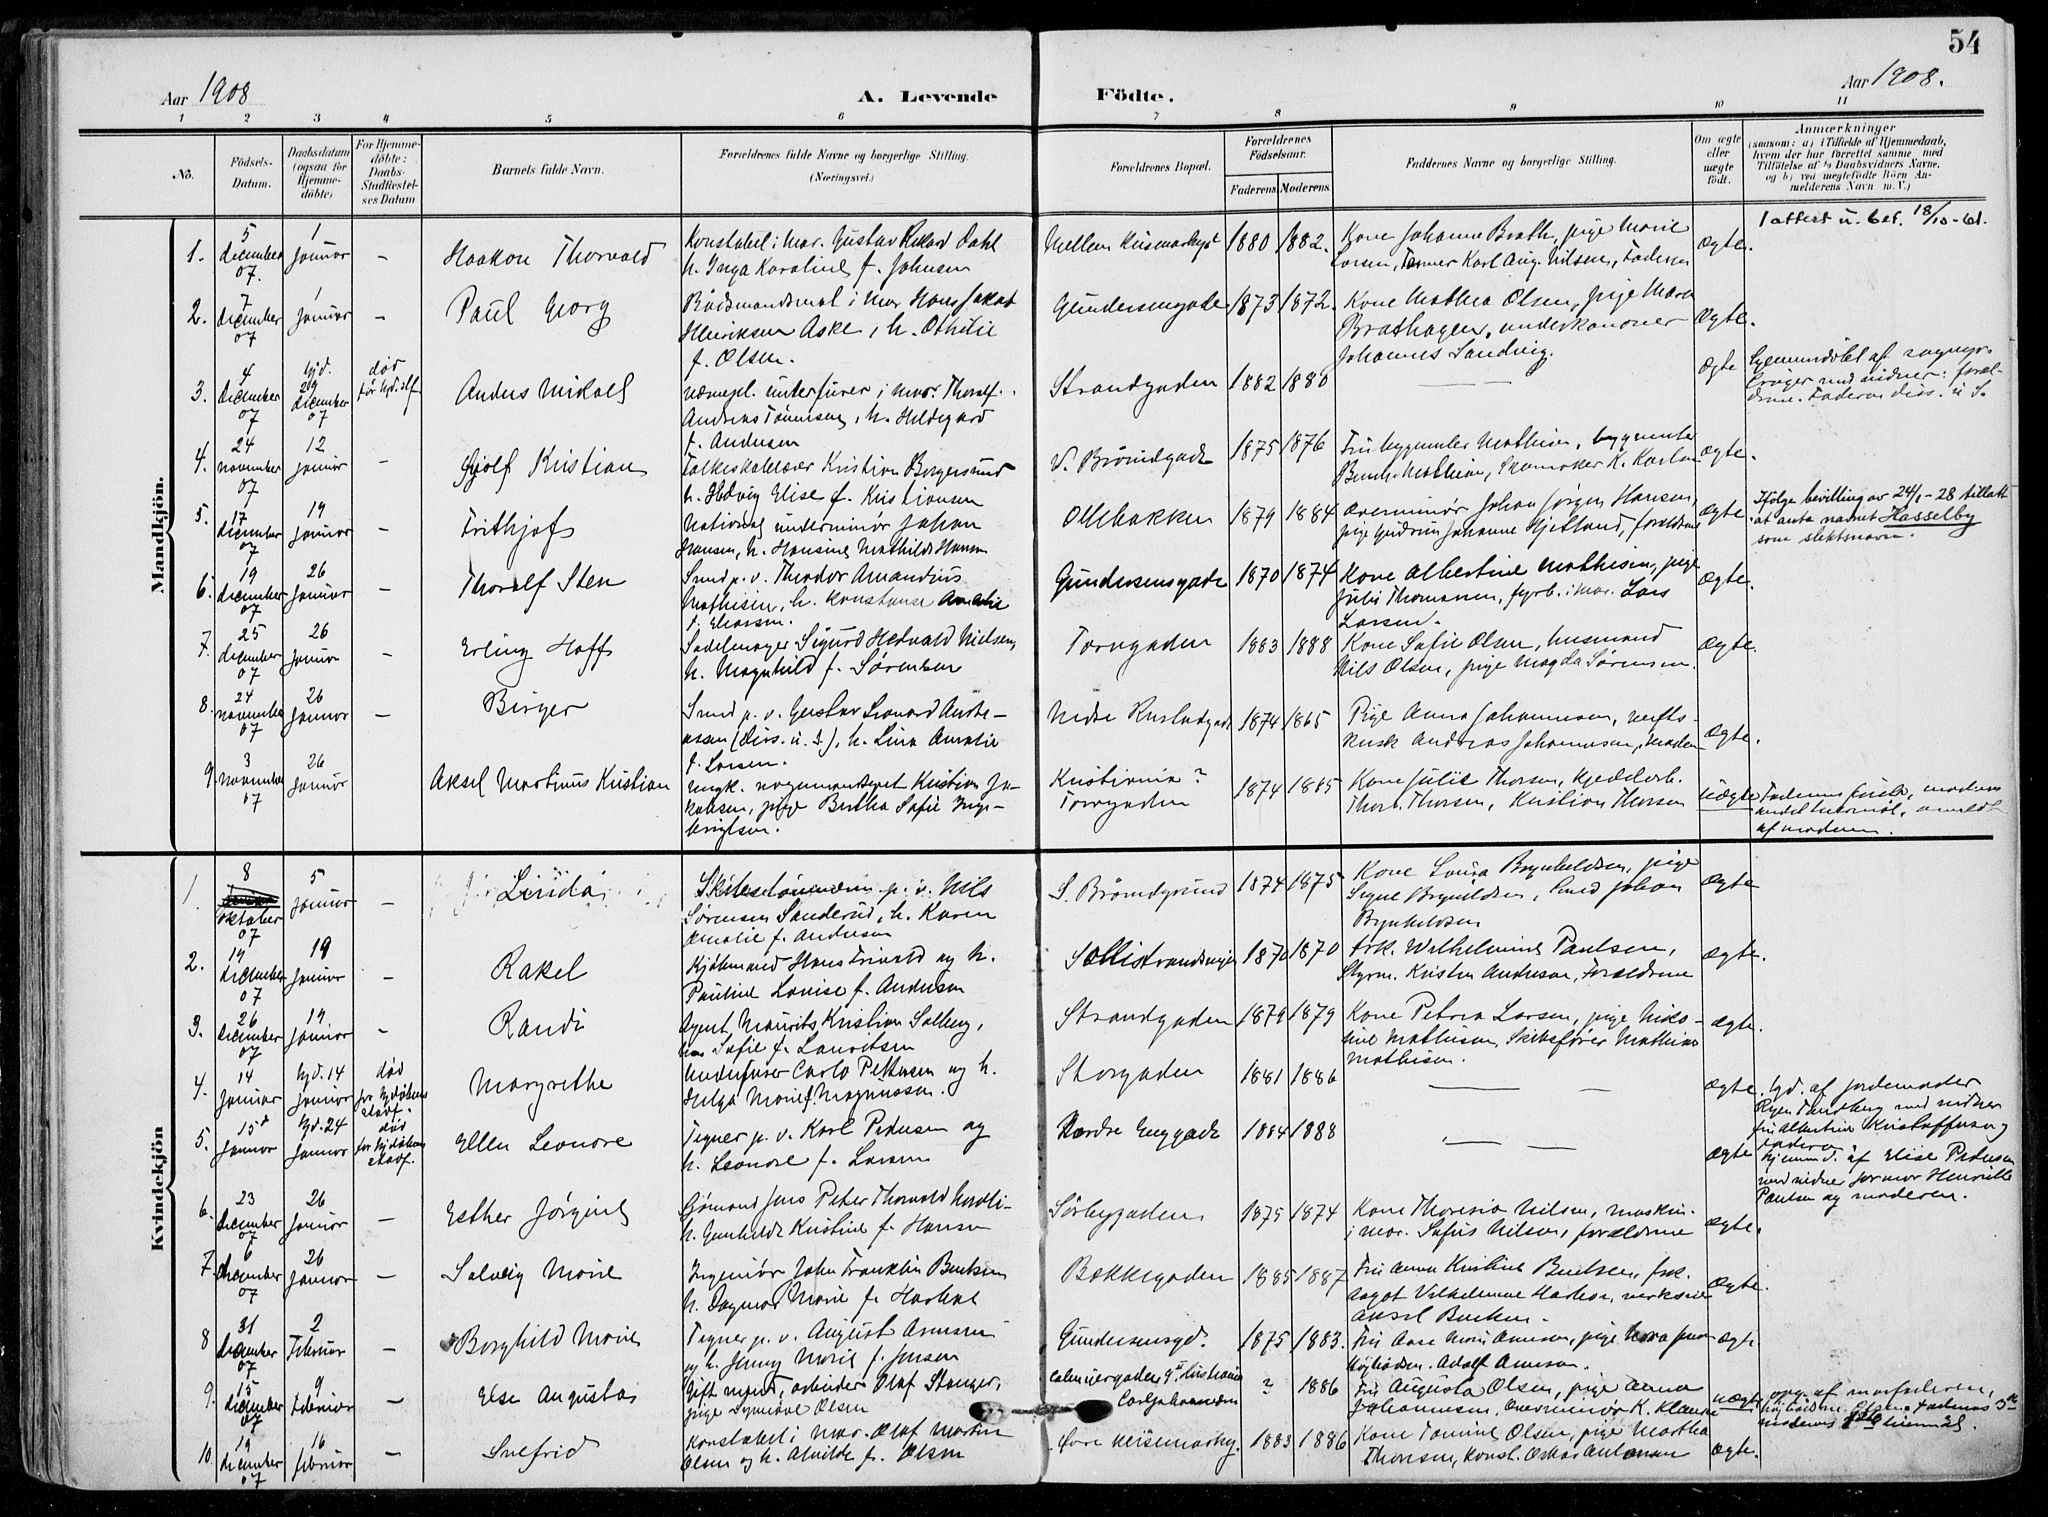 54
Aar 1908
A. Levende
Födte.
Aar 1908.
1 2 3 4 5 6 7 8 9 10 11
No.
Födsels-
Datum.
Daabsdatum
(ogsaa for
Hjemme-
döbte)
For Hjemme-
döbte:
Daabs-
Stadfæstel-
ses Datum
Barnets fulde Navn.
Forældrenes fulde Navne og borgerlige Stilling.
(Næringsvei.)
Forældrenes Bopæl.
Forældrenes
Födselsaar.
Faderens. Moderens.
Faddernes Navne og borgerlige Stilling.
Om ægte
eller
uægte
födt.
Anmærkninger
(saasom: a) i Tilfælde af Hjemmedaab,
hvem der har forrettet samme med
Tilföielse af 2 Daabsvidners Navne,
og b) ved uægtefödte Börn An-
melderens Navn m. V.)
Mandkjön.
1. 5 december 07. 1 Januar – Haakon Thorvald
Konstabel i mar. Gustav Rikard Dahl
h. Inga Karoline f. Johnsen
1880 1882.
Kone Johanne Brath, pige Marie
Larsen, Karl Aug. Nilsen, Faderen
Ægte.
1 attest u. bet. 18/10-61.
2. 7 december 07 1 Januar – Paul Georg
Baadsmandsmat i mar Hans Jakob
Henriksen Aske, h. Othilie
f. Olsen.
Gundersensgade 1873 1872.
Kone Mathea Olsen, pige Mara
Brathagen, underkanoner
Johannes Sandvig.
Ægte.
3. 4 december 07 hjd. 29 december 07 død før hjd. stf. Anders Mikael
værnepl. underfurer i mar. Thoralf
Andreas Tønnesen, h. Hildegard
f. Andersen
Strandgaden 1882 1880 —
Ægte
Hjemmedøbt af sognepr.
Krüger med vidner: foræl-
drene. Faderen diss. u. S.
4. 24 november 07 12 Januar – Kristian
Folkeskolelærer Kristian Borgersrud
h. Hedvig Elise f. Kristiansen
V. Brøndgade 1875 1876
Fru bygmester Mathisen, bygmester
Mathisen, Skomaker K. Karlsen
Ægte.
5. 17 december 07 19 Januar – Frithjof
National underminør Johan
Hansen, h. Hansine Mathilde Hansen
Ollebakken 1879 1884
Overminør Johan Jørgen Hansen,
pige Gudrun Johanne Hjelland, forældrene
Ægte
Ifølge bevilling av 24/1-28 tillatt
at anta navnet Hasselby
som slektsnavn.
6. 19 december 07 26 Januar – Thoralf Sten
Smed p. v. Theodor Amandius
Mathisen, h. Konstanse Amalie
f. Eliassen.
Gundersensgade 1870 1874
Kone Albertine Mathisen, pige
Julie Thomassen, fyrb. i mar. Lars
Larsen.
Ægte.
7. 25 december 07 26 Januar – Erling Hoff
Sadelmager Sigurd Hedvald Nielsen,
h. Magnhild f. Sørensen
Torvgaden 1883 1888
Kone Sofie Olsen, husmand
Nils Olsen, pige Magda Sørensen.
Ægte.
8. 24 november 07 26 Januar – Birger
Smed p. v. Gustav Leonard
(diss. u. S.), h. Lina Amalie
f. Larsen.
Nedre 1874 1865
Pige Anna Johannesen, verfts-
kusk Andreas Johannesen, Moderen
Ægte.
9. 3 november 07 26 Januar Aksel Martinus Kristian
ungk. vognmandsgut Kristian Ja-
kobsen, pige Bertha Sofie Inge-
brigtsen.
Kristiania?
Torvgaden
1874 1885
Kone Julie Thorsen, kjedelarb.
Thorv. Thorsen, Kristian Thorsen
Uægte
Faderens første, moderens
andet leiermaal, anmeldt
af moderen.
Kvindekjön
1. 8 oktober 07 5 Januar – Linda
Skibstømmerm. p. v. Nils
Sørensen Sanderud, h. Karen
Amalie f. Andersen
S. Brøndgrund 1874 1875
Kone Lovisa Brynhildsen, pige
Signe Brynildsen, Smed Johan
Brynhildsen
Ægte
2. 14 december 07 19 Januar – Rakel
Kjøbmand Hans Trivald og h.
Pauline Lovise f. Andersen
Sollistrandveien 1870 1870
frk. Wilhelmine Paulsen,
Styrm. Kristen Andersen, Forældrene
Ægte.
3. 26 december 07 19 Januar – Randi
Agent Maurits Kristian Solberg,
h. Sofie f. Lauritsen
Strandgaden 1879 1879
Kone Petrea Larsen, pige
Mathisen, Skibsfører Mathias
Mathisen.
Ægte.
4. 14 Januar hjd. 14 Januar død før hjdåbens stadf. Margrethe
Underfurer Carlo Pettersen og h.
Helga Marie f. Magnussen.
Storgaden 1881 1886 — —
Ægte.
hjd. af jordemoder
Tandberg med vidner
fru Albertine Kristoffersen og
faderen
5. 15 Januar hjd. 24 Januar død før hjdåbens stadf. Ellen Leonore
Tegner p. v. Karl Pedersen og
h. Leonore f. Larsen
Nordre Enggade 1884 1888 — —
Ægte
Hjemmed. af Elise Pedersen
med vidner farmor Henriette
Paulsen og moderen.
6. 23 december 07 26 Januar – Esther Jørgine
Sjømand Jens Peter Thorvald Nordli
h. Gunhilde Kristine f. Hansen
Sørbygaden 1875 1874
Kone Theresia Nilsen, maskin.
i mar. Sofus Nilsen, forældrene
Ægte.
7. 6 december 07 26 Januar – Solveig Marie
Ingeniør John Franklin Bentsen
h. Dagmar Marie f. Harboe
Bakkegaden 1885 1887
Fru Anna Kristine Bentsen, frk.
Aagot Vilhelmine Harboe, verkseier
Aksel Bentsen.
Ægte.
8 31 december 07 2 Februar – Borghild Marie
Tegner p. v. August Arnesen
og h. Jenny Marie f. Jensen
Gundersensgd. 1875 1883.
Fru Aase Marie Arnesen, pige Nora Jensen
Adolf Arnesen.
Ægte
9. 15 december 07 9 Februar – Else Augusta
Gift mand, arbeider Olaf Stanger,
pige Synnøve Olsen
Carljohansvern
? 1886
Fru Augusta Olsen, pige Anna
Johannesen, Overminør K. Klausen
Uægte
opg. af morfaderen,
Olsen. Faderens 3die
moderens leiermål.
10. 19 december 07 16 Februar – Snefrid
Konstabel i mar. Olaf Martin
Olsen og h. Alvilde f. Olsen
1883 1886
Kone Tomine Olsen, pige Martha
Thoresen, Konst. Oskar Antonsen
Ægte.